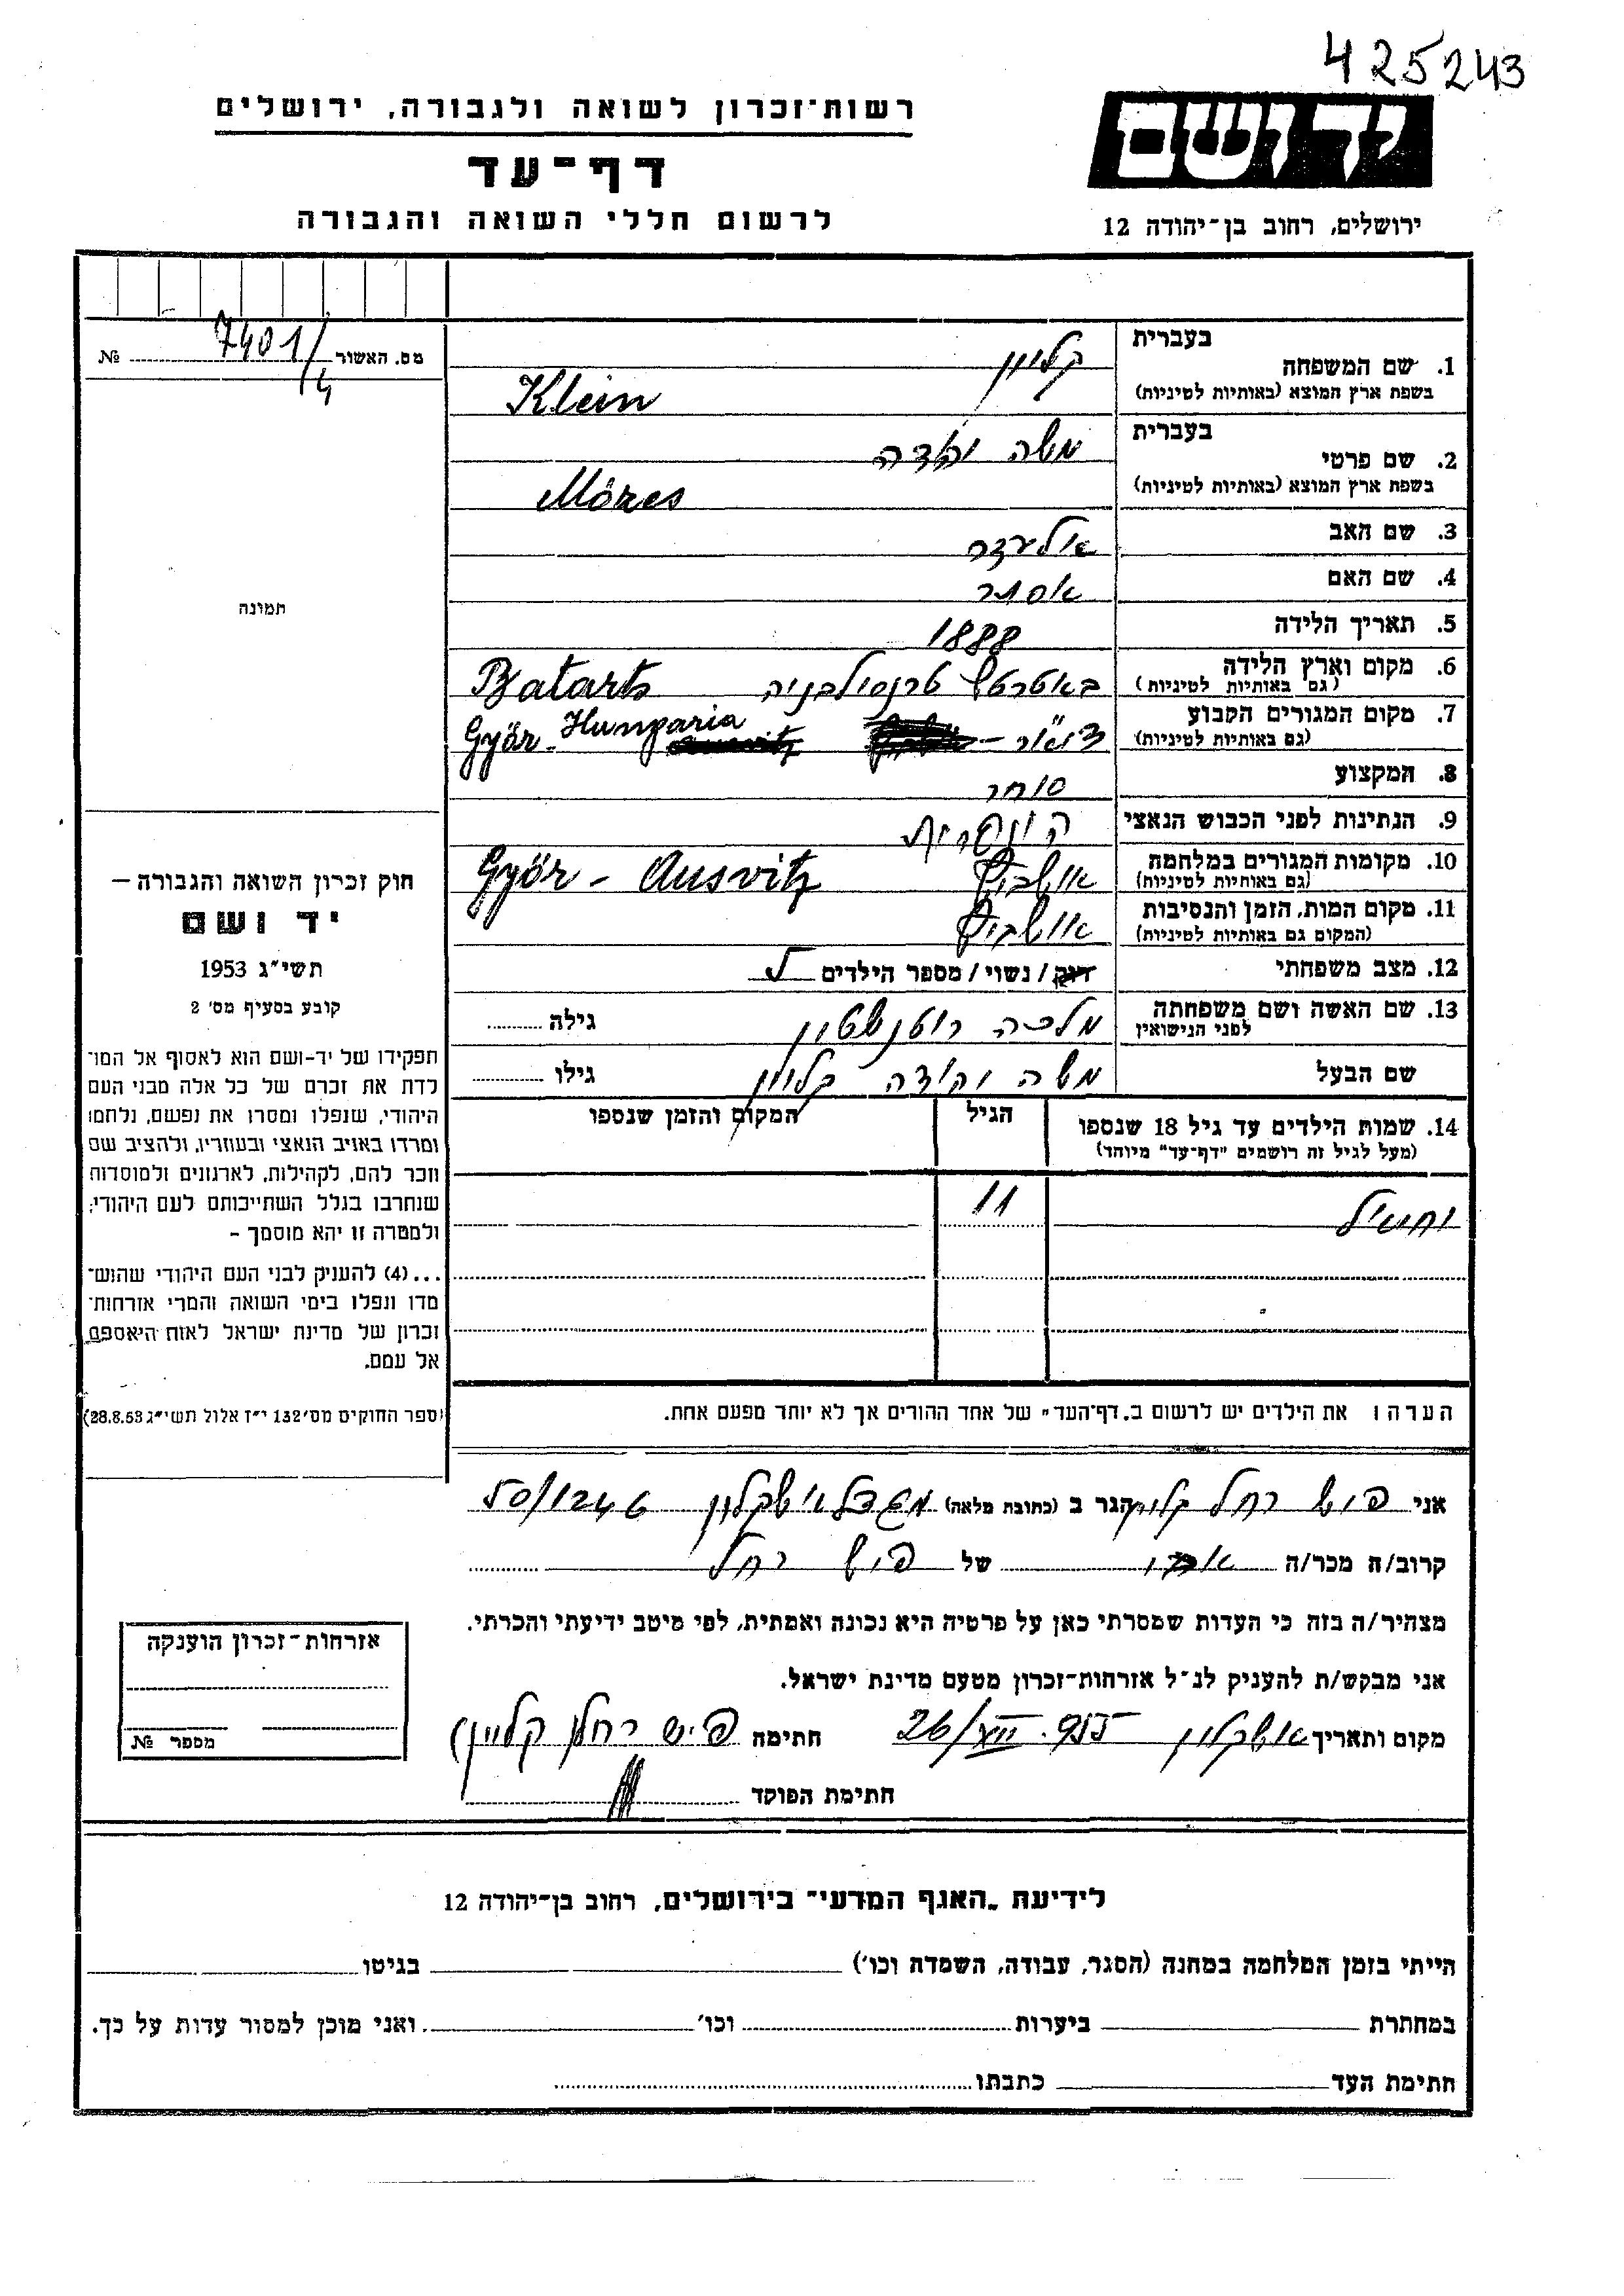 425243
רשות־זכרון לשואה ולגבורה, ירושלים
יד ושם
דף־עד
לרשום חללי השואה והגבורה
ירושלים, רחוב בן־יהודה 12
מס. האשור 7401/4 №
בעברית
1. שם המשפחה קליין
בשפת ארץ המוצא (באותיות לטיניות) Klein
בעברית
2. שם פרטי משה יהודה
בשפת ארץ המוצא (באותיות לטיניות) Mózes
3. שם האב אלעזר
4. שם האם אסתר
5. תאריך הלידה 1888
6. מקום וארץ הלידה באטרטש טרנסילבניה Batarts
(גם באותיות לטיניות)
7. מקום המגורים הקבוע Győr - Hungaria
(גם באותיות לטיניות)
8. המקצוע סוחר
9. הנתינות לפני הכבוש הנאצי הונגרית
10. מקומות המגורים במלחמה אושביץ Győr - Ausvitz
(גם באותיות לטיניות)
11. מקום המות, הזמן והנסיבות אושביץ
(המקום גם באותיות לטיניות)
12. מצב משפחתי רווק / נשוי / מספר הילדים
13. שם האשה ושם משפחתה מלכה רוטנשטיין גילה
לפני הנישואין
שם הבעל משה יהודה קליין גילו
14. שמות הילדים עד גיל 18 שנספו הגיל המקום והזמן שנספו
(מעל לגיל זה רושמים "דף־עד" מיוחד)
11
הערה: את הילדים יש לרשום ב„דף־העד" של אחד ההורים אך לא יותר מפעם אחת.
תמונה
חוק זכרון השואה והגבורה —
יד ושם
תשי"ג 1953
קובע בסעיף מס' 2
תפקידו של יד-ושם הוא לאסוף אל המו־
לדת את זכרם של כל אלה מבני העם
היהודי, שנפלו ומסרו את נפשם, נלחמו
ומרדו באויב הנאצי ובעוזריו, ולהציב שם
וזכר להם, לקהילות, לארגונים ולמוסדות
שנחרבו בגלל השתייכותם לעם היהודי;
ולמטרה זו יהא מוסמך -
...(4) להעניק לבני העם היהודי שהוש־
מדו ונפלו בימי השואה והמרי אזרחות־
זכרון של מדינת ישראל לאות היאספם
אל עמם.
(ספר החוקים מס' 132 י"ז אלול תשי"ג 28.8.53)
אני פיש רחל קליין הגר ב (כתובת מלאה) מגדל אשקלון 50/1246
קרוב/ה מכר/ה של פיש רחל
מצהיר/ה בזה כי העדות שמסרתי כאן על פרטיה היא נכונה ואמתית, לפי מיטב ידיעתי והכרתי.
אני מבקש/ת להעניק לנ"ל אזרחות־זכרון מטעם מדינת ישראל.
מקום ותאריך אשקלון 26/XII.955 חתימה פיש רחל קליין
חתימת הפוקד
אזרחות־זכרון הוענקה
מספר №
לידיעת „האגף המדעי" בירושלים, רחוב בן־יהודה 12
הייתי בזמן המלחמה במחנה (הסגר, עבודה, השמדה וכו') בגיטו
במחתרת ביערות וכו' ואני מוכן למסור עדות על כך.
חתימת העד כתבתו